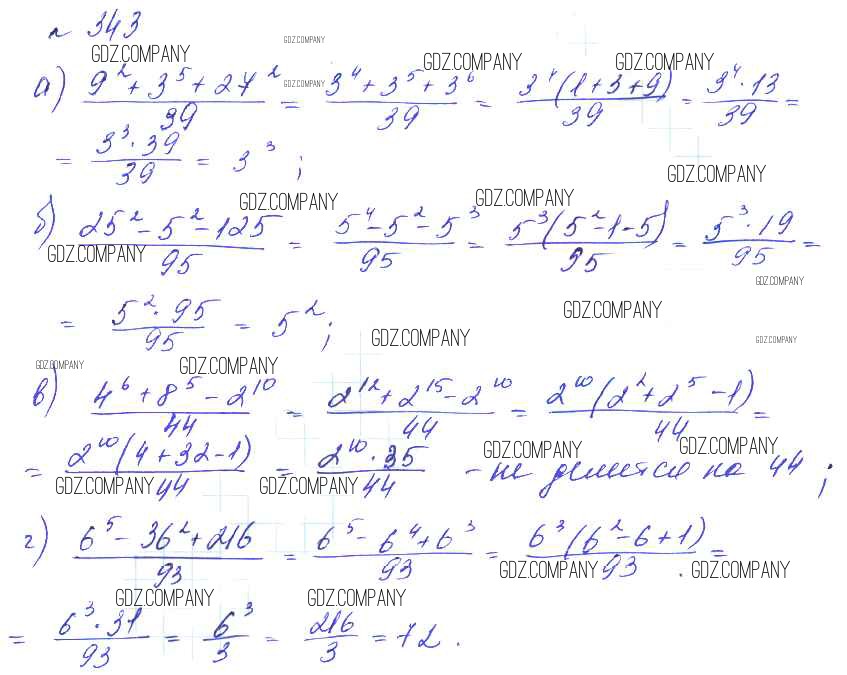 № 343
GDZ.COMPANY GDZ.COMPANY GDZ.COMPANY GDZ.COMPANY
а) (9² + 3⁵ + 27²)/39 = (3⁴ + 3⁵ + 3⁶)/39 = 3⁴(1+3+9)/39 = (3⁴ · 13)/39 =
GDZ.COMPANY
= (3³ · 39)/39 = 3³ ;
GDZ.COMPANY
GDZ.COMPANY GDZ.COMPANY
б) (25² - 5² - 125)/95 = (5⁴ - 5² - 5³)/95 = 5³(5² - 1 - 5)/95 = (5³ · 19)/95 =
GDZ.COMPANY GDZ.COMPANY
= (5² · 95)/95 = 5² ;
GDZ.COMPANY
GDZ.COMPANY GDZ.COMPANY
GDZ.COMPANY GDZ.COMPANY
в) (4⁶ + 8⁵ - 2¹⁰)/44 = (2¹² + 2¹⁵ - 2¹⁰)/44 = 2¹⁰(2² + 2⁵ - 1)/44 =
= 2¹⁰(4 + 32 - 1)/44 = (2¹⁰ · 35)/44 - не делится на 44 ;
GDZ.COMPANY GDZ.COMPANY GDZ.COMPANY GDZ.COMPANY
г) (6⁵ - 36² + 216)/93 = (6⁵ - 6⁴ + 6³)/93 = 6³(6² - 6 + 1)/93 =
GDZ.COMPANY GDZ.COMPANY
GDZ.COMPANY GDZ.COMPANY
= (6³ · 31)/93 = 6³/3 = 216/3 = 72 .